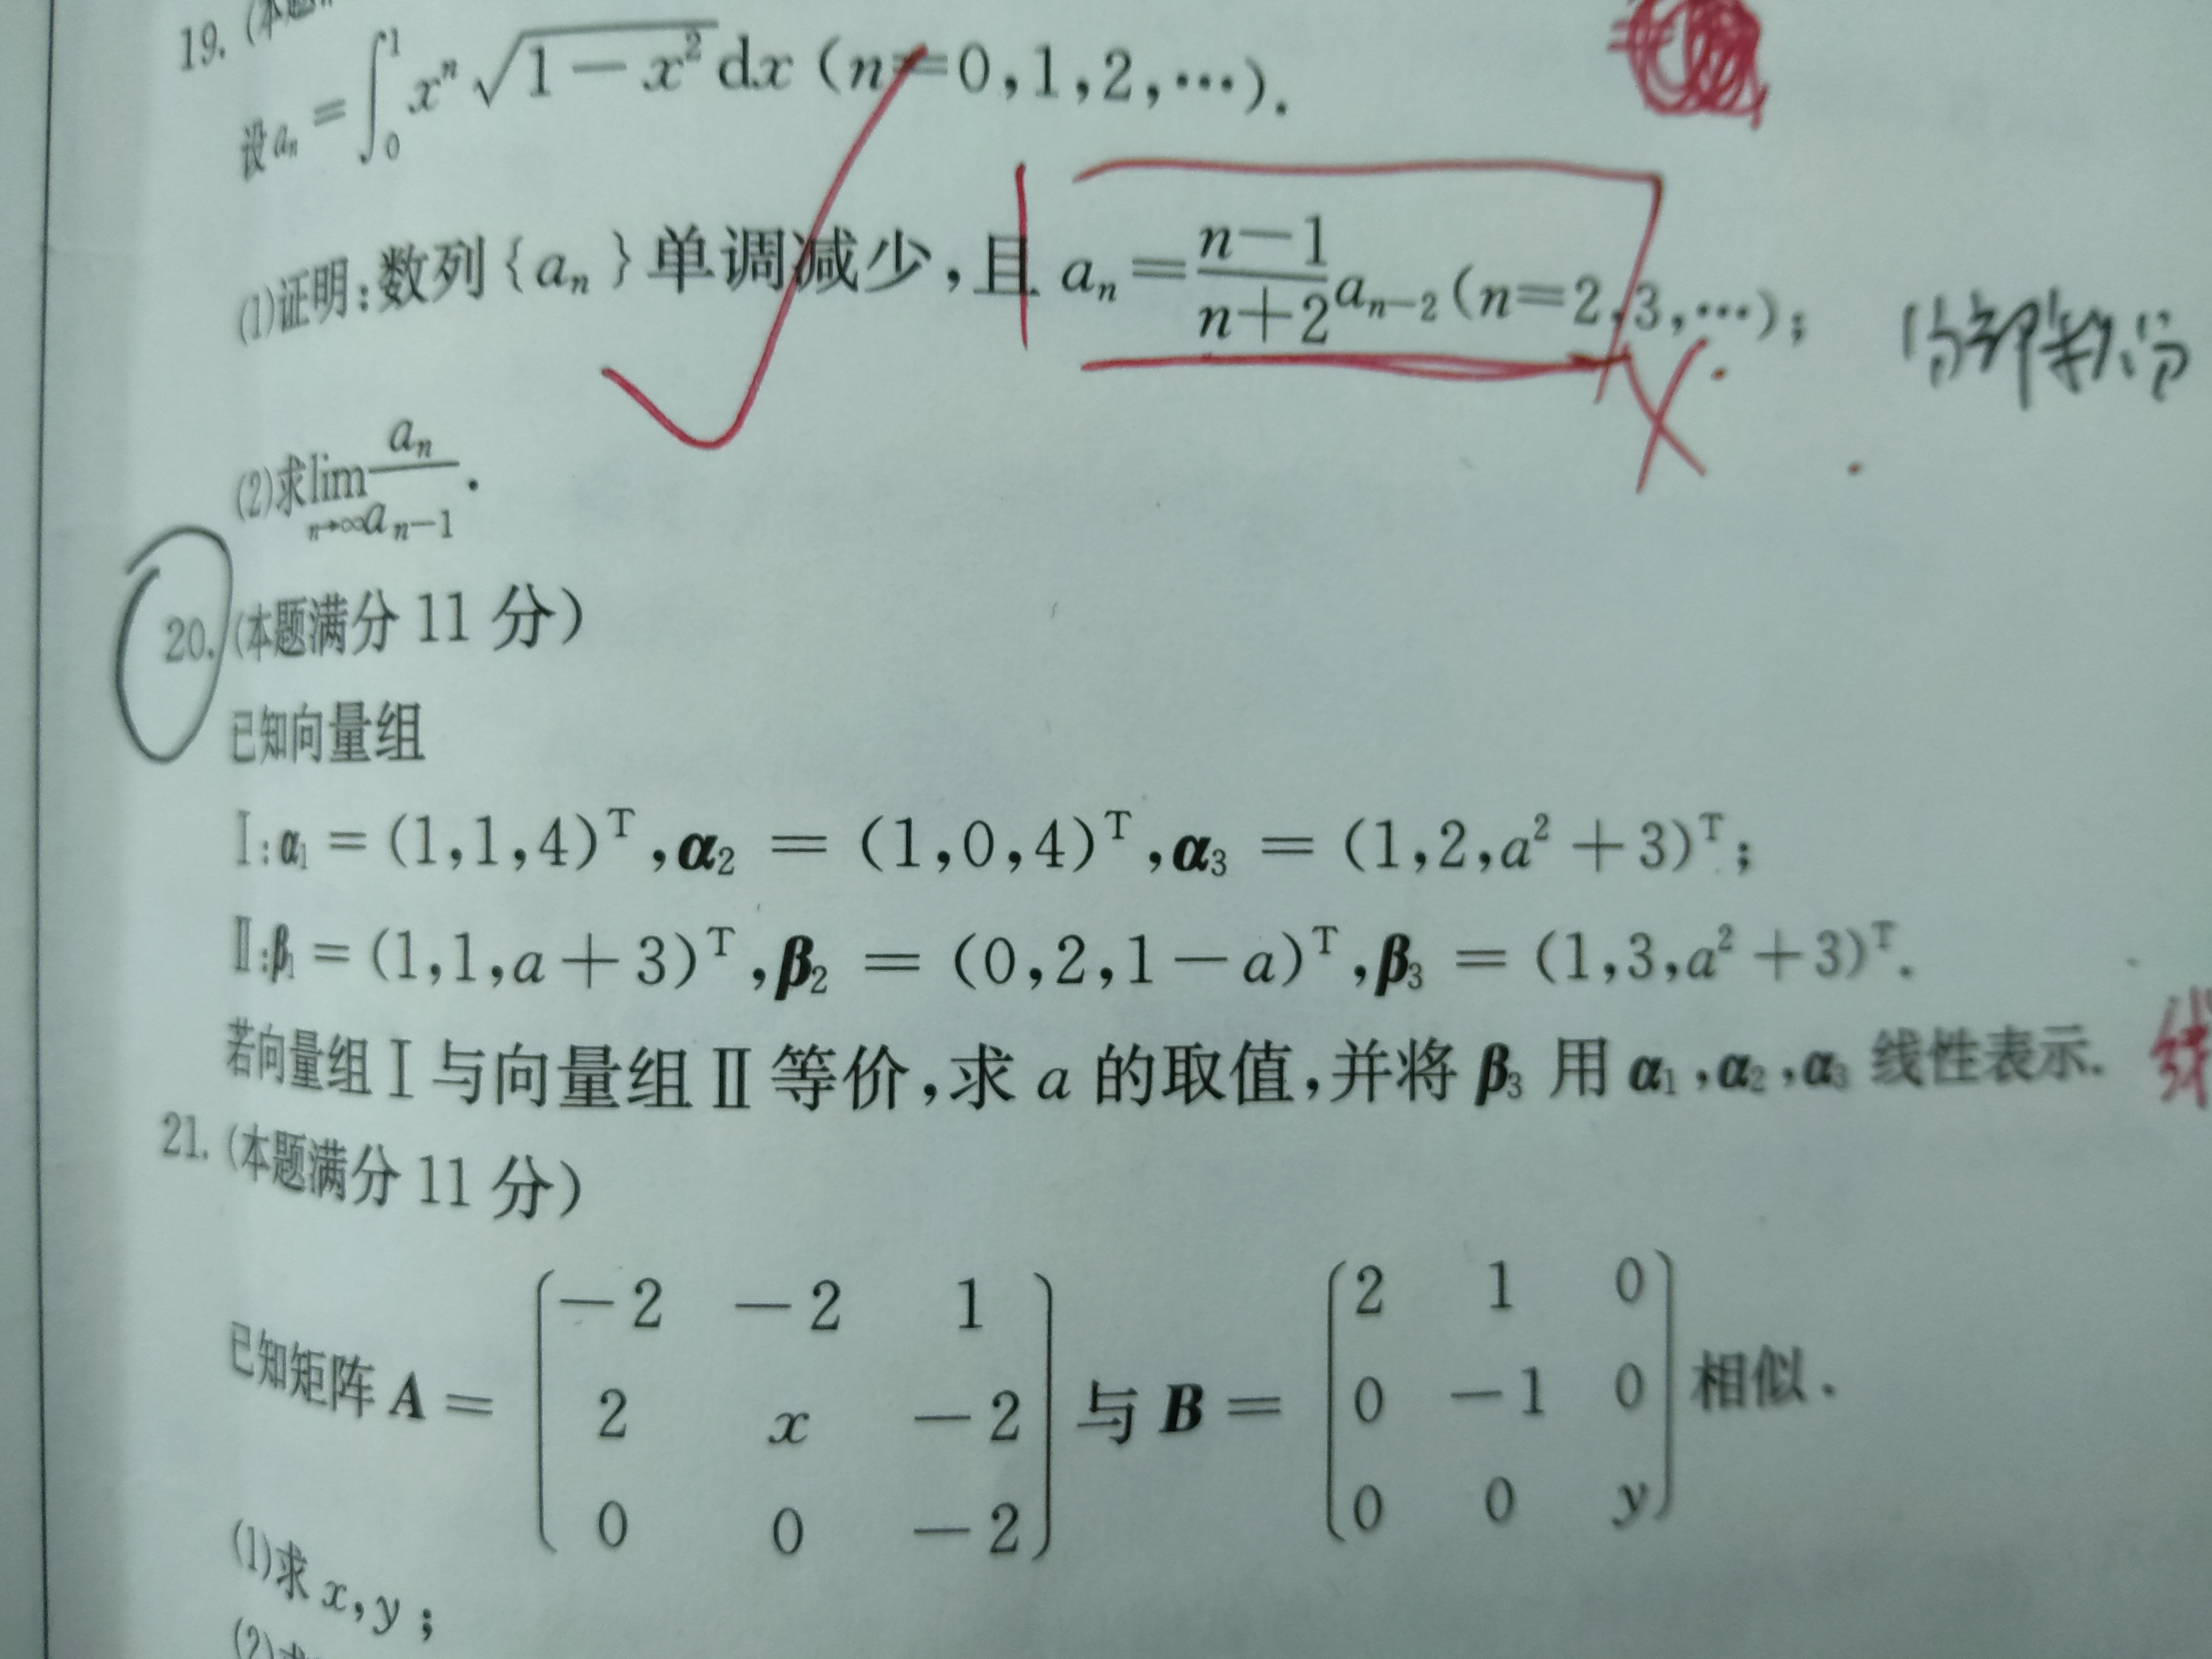 19. (本题
设 aₙ = ∫₀¹ xⁿ √(1−x²) dx (n=0,1,2,⋯).
(1)证明:数列{aₙ}单调减少,且 aₙ = (n−1)/(n+2) aₙ₋₂ (n=2,3,⋯); 分部积分
(2)求 lim_{n→∞} aₙ/aₙ₋₁.
20. (本题满分 11 分)
已知向量组
Ⅰ:α₁ = (1,1,4)ᵀ,α₂ = (1,0,4)ᵀ,α₃ = (1,2,a²+3)ᵀ;
Ⅱ:β₁ = (1,1,a+3)ᵀ,β₂ = (0,2,1−a)ᵀ,β₃ = (1,3,a²+3)ᵀ.
若向量组Ⅰ与向量组Ⅱ等价,求 a 的取值,并将 β₃ 用 α₁,α₂,α₃ 线性表示.
21. (本题满分 11 分)
−2 −2 1 2 1 0
已知矩阵 A = 2 x −2 与 B = 0 −1 0 相似.
0 0 −2 0 0 y
(1)求 x,y;
(2)求